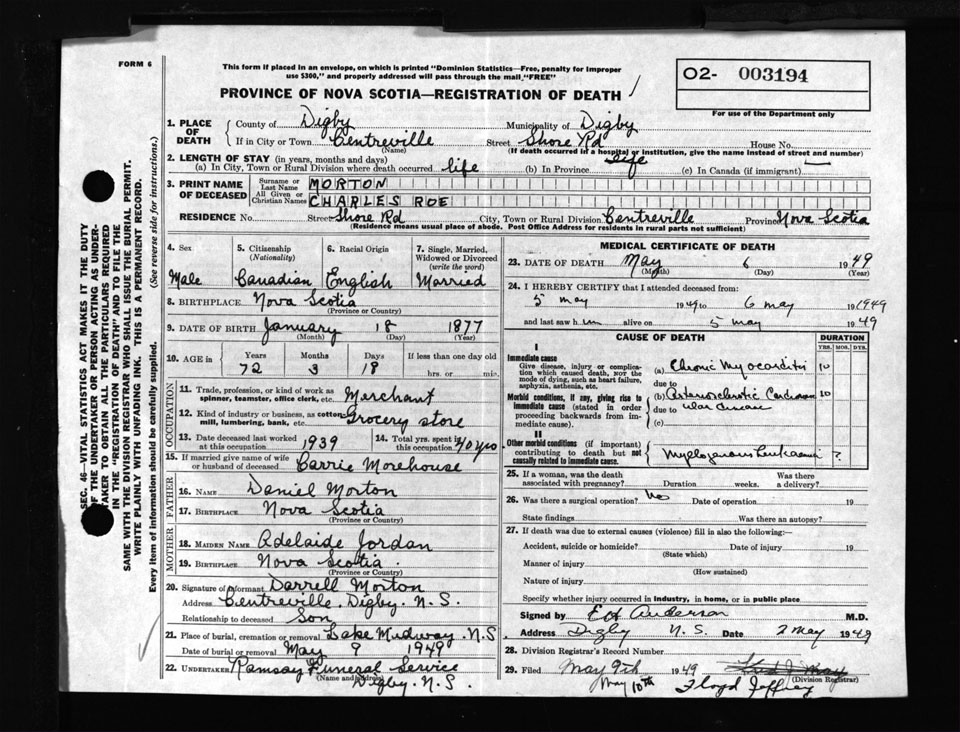 FORM 6
This form if placed in an envelope, on which is printed "Dominion Statistics—Free, penalty for improper
use $300," and properly addressed will pass through the mail "FREE"
PROVINCE OF NOVA SCOTIA—REGISTRATION OF DEATH
O2- 003194
For use of the Department only
SEC. 46—VITAL STATISTICS ACT MAKES IT THE DUTY
OF THE UNDERTAKER OR PERSON ACTING AS UNDER-
TAKER TO OBTAIN ALL THE PARTICULARS REQUIRED
IN THE "REGISTRATION OF DEATH" AND TO FILE THE
SAME WITH THE DIVISION REGISTRAR WHO SHALL ISSUE THE BURIAL PERMIT.
WRITE PLAINLY WITH UNFADING INK. THIS IS A PERMANENT RECORD.
Every item of information should be carefully supplied. (See reverse side for instructions.)
1. PLACE OF DEATH
County of Digby Municipality of Digby
If in City or Town Centreville Street Shore Rd House No.
(Name) (If death occurred in a hospital or institution, give the name instead of street and number)
2. LENGTH OF STAY (in years, months and days)
(a) In City, Town or Rural Division where death occurred life (b) In Province life (c) In Canada (if immigrant)
3. PRINT NAME OF DECEASED
Surname or Last Name MORTON
All Given or Christian Names CHARLES ROE
RESIDENCE No. Street Shore Rd City, Town or Rural Division Centreville Province Nova Scotia
(Residence means usual place of abode. Post Office Address for residents in rural parts not sufficient)
4. Sex 5. Citizenship (Nationality) 6. Racial Origin 7. Single, Married, Widowed or Divorced (write the word)
Male Canadian English Married
8. BIRTHPLACE Nova Scotia
(Province or Country)
9. DATE OF BIRTH January 18 1877
(Month) (Day) (Year)
10. AGE in Years Months Days If less than one day old
72 3 18 hrs. or min.
OCCUPATION
11. Trade, profession, or kind of work as
spinner, teamster, office clerk, etc. Merchant
12. Kind of industry or business, as cotton-
mill, lumbering, bank, etc. Grocery store
13. Date deceased last worked
at this occupation 1939
14. Total yrs. spent in
this occupation 40 yrs
15. If married give name of wife
or husband of deceased Carrie Morehouse
FATHER
16. NAME Daniel Morton
17. BIRTHPLACE Nova Scotia
(Province or Country)
MOTHER
18. MAIDEN NAME Adelaide Jordan
19. BIRTHPLACE Nova Scotia
(Province or Country)
20. Signature of informant Darrell Morton
Address Centreville. Digby. N.S.
Relationship to deceased Son
21. Place of burial, cremation or removal Lake Midway. N.S
Date of burial or removal May 9 1949
22. UNDERTAKER Ramsay Funeral Service
(Name and address)
Digby. N.S.
MEDICAL CERTIFICATE OF DEATH
23. DATE OF DEATH May 6 1949
(Month) (Day) (Year)
24. I HEREBY CERTIFY that I attended deceased from:
5 may 1949 to 6 may 1949
and last saw him alive on 5 may 1949
CAUSE OF DEATH DURATION
YRS. MOS. DYS.
I
Immediate cause
Give disease, injury or complica-
tion which caused death, not the
mode of dying, such as heart failure,
asphyxia, asthenia, etc.
(a) Chronic Myocarditis 10
due to
Morbid conditions, if any, giving rise to
immediate cause (stated in order
proceeding backwards from im-
mediate cause).
(b) Arteriosclerotic Cardiovas 10
due to cular disease
(c)
II
Other morbid conditions (if important)
contributing to death but not
causally related to immediate cause.
Myelogenous Leukaemia ?
25. If a woman, was the death
associated with pregnancy? Duration weeks. Was there
a delivery?
26. Was there a surgical operation? No Date of operation 19
State findings Was there an autopsy?
27. If death was due to external causes (violence) fill in also the following:—
Accident, suicide or homicide? Date of injury 19
(State which)
Manner of injury
(How sustained)
Nature of injury
Specify whether injury occurred in industry, in home, or in public place
Signed by Anderson M.D.
Address Digby N.S. Date 2 May 1949
28. Division Registrar's Record Number
29. Filed May 9th 1949
(Division Registrar)
May 10th Floyd Jeffrey